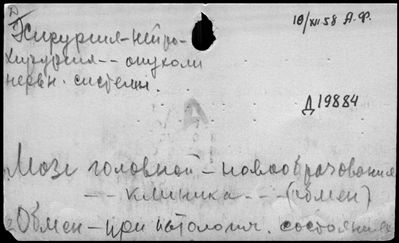 Д
Хирургия-нейро-
хирургия -- опухоли
нервн. системы.
10/XII 58 А.Ф.
Д19884
А
Мозг головной - новообразования
-- клиника -- (обмен)
Обмен - при патологич. состояниях